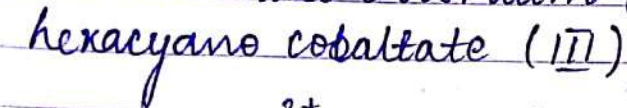 hexacyano cobaltate (III)